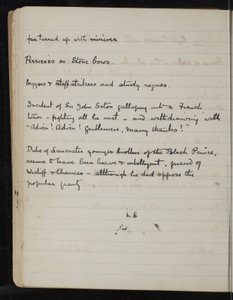 fur turned up with miniver.
Perrieries or Stone bows.
Beggars & Staff-strikers and sturdy rogues.
Incident of Sir John Seton galloping into a French
town - fighting all he met - and withdrawing with
"Adieu! Adieu! Gentlemen, many thanks!"
Duke of Lancaster younger brother of the Black Prince,
seems to have been brave & intelligent, friend of
Wicliff & Chaucer - although he did oppose the
popular party